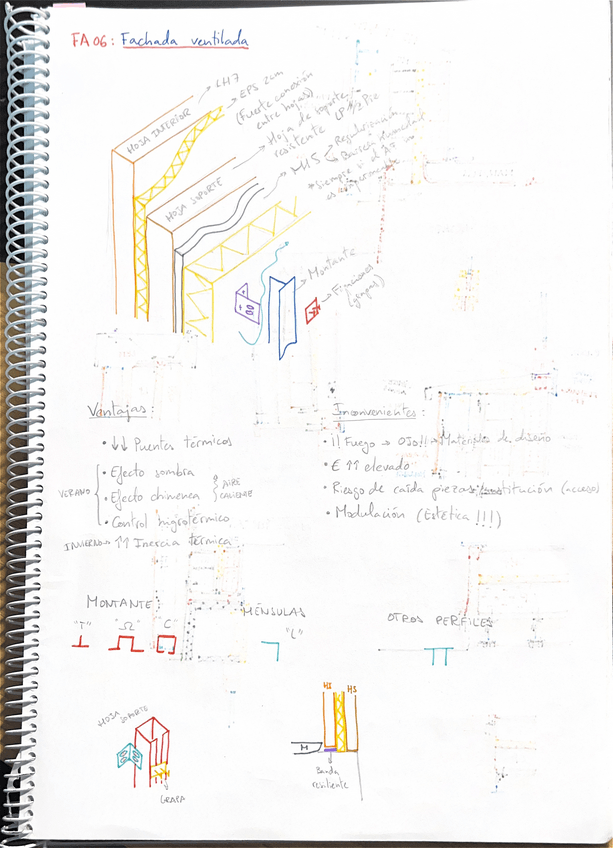 FA06: Fachada ventilada
HOJA INTERIOR
→ LH7
→ EPS 2cm
(Fuerte conexión
entre hojas)
HOJA SOPORTE
→ Hoja de soporte
resistente LP 1/2 Pie
→ M15
Regularización
Barrera humedad
* Siempre si el AT no
es impermeable
→ Montante
→ Fijaciones
(grapas)
Ventajas:
• ↓↓ Puentes térmicos
VERANO
• Efecto sombra
• Efecto chimenea
AIRE
CALIENTE
• Control higrotérmico
INVIERNO → ↑↑ Inercia térmica
Inconvenientes:
• ¡¡Fuego → OJO!! → Materiales de diseño
• € ↑↑ elevado
• Riesgo de caída piezas/sustitución (acceso)
• Modulación (Estética !!!)
MONTANTE
"T" "Ω" "C"
MÉNSULAS
"L"
OTROS PERFILES
HOJA
SOPORTE
GRAPA
HI HS
H
Banda
resiliente